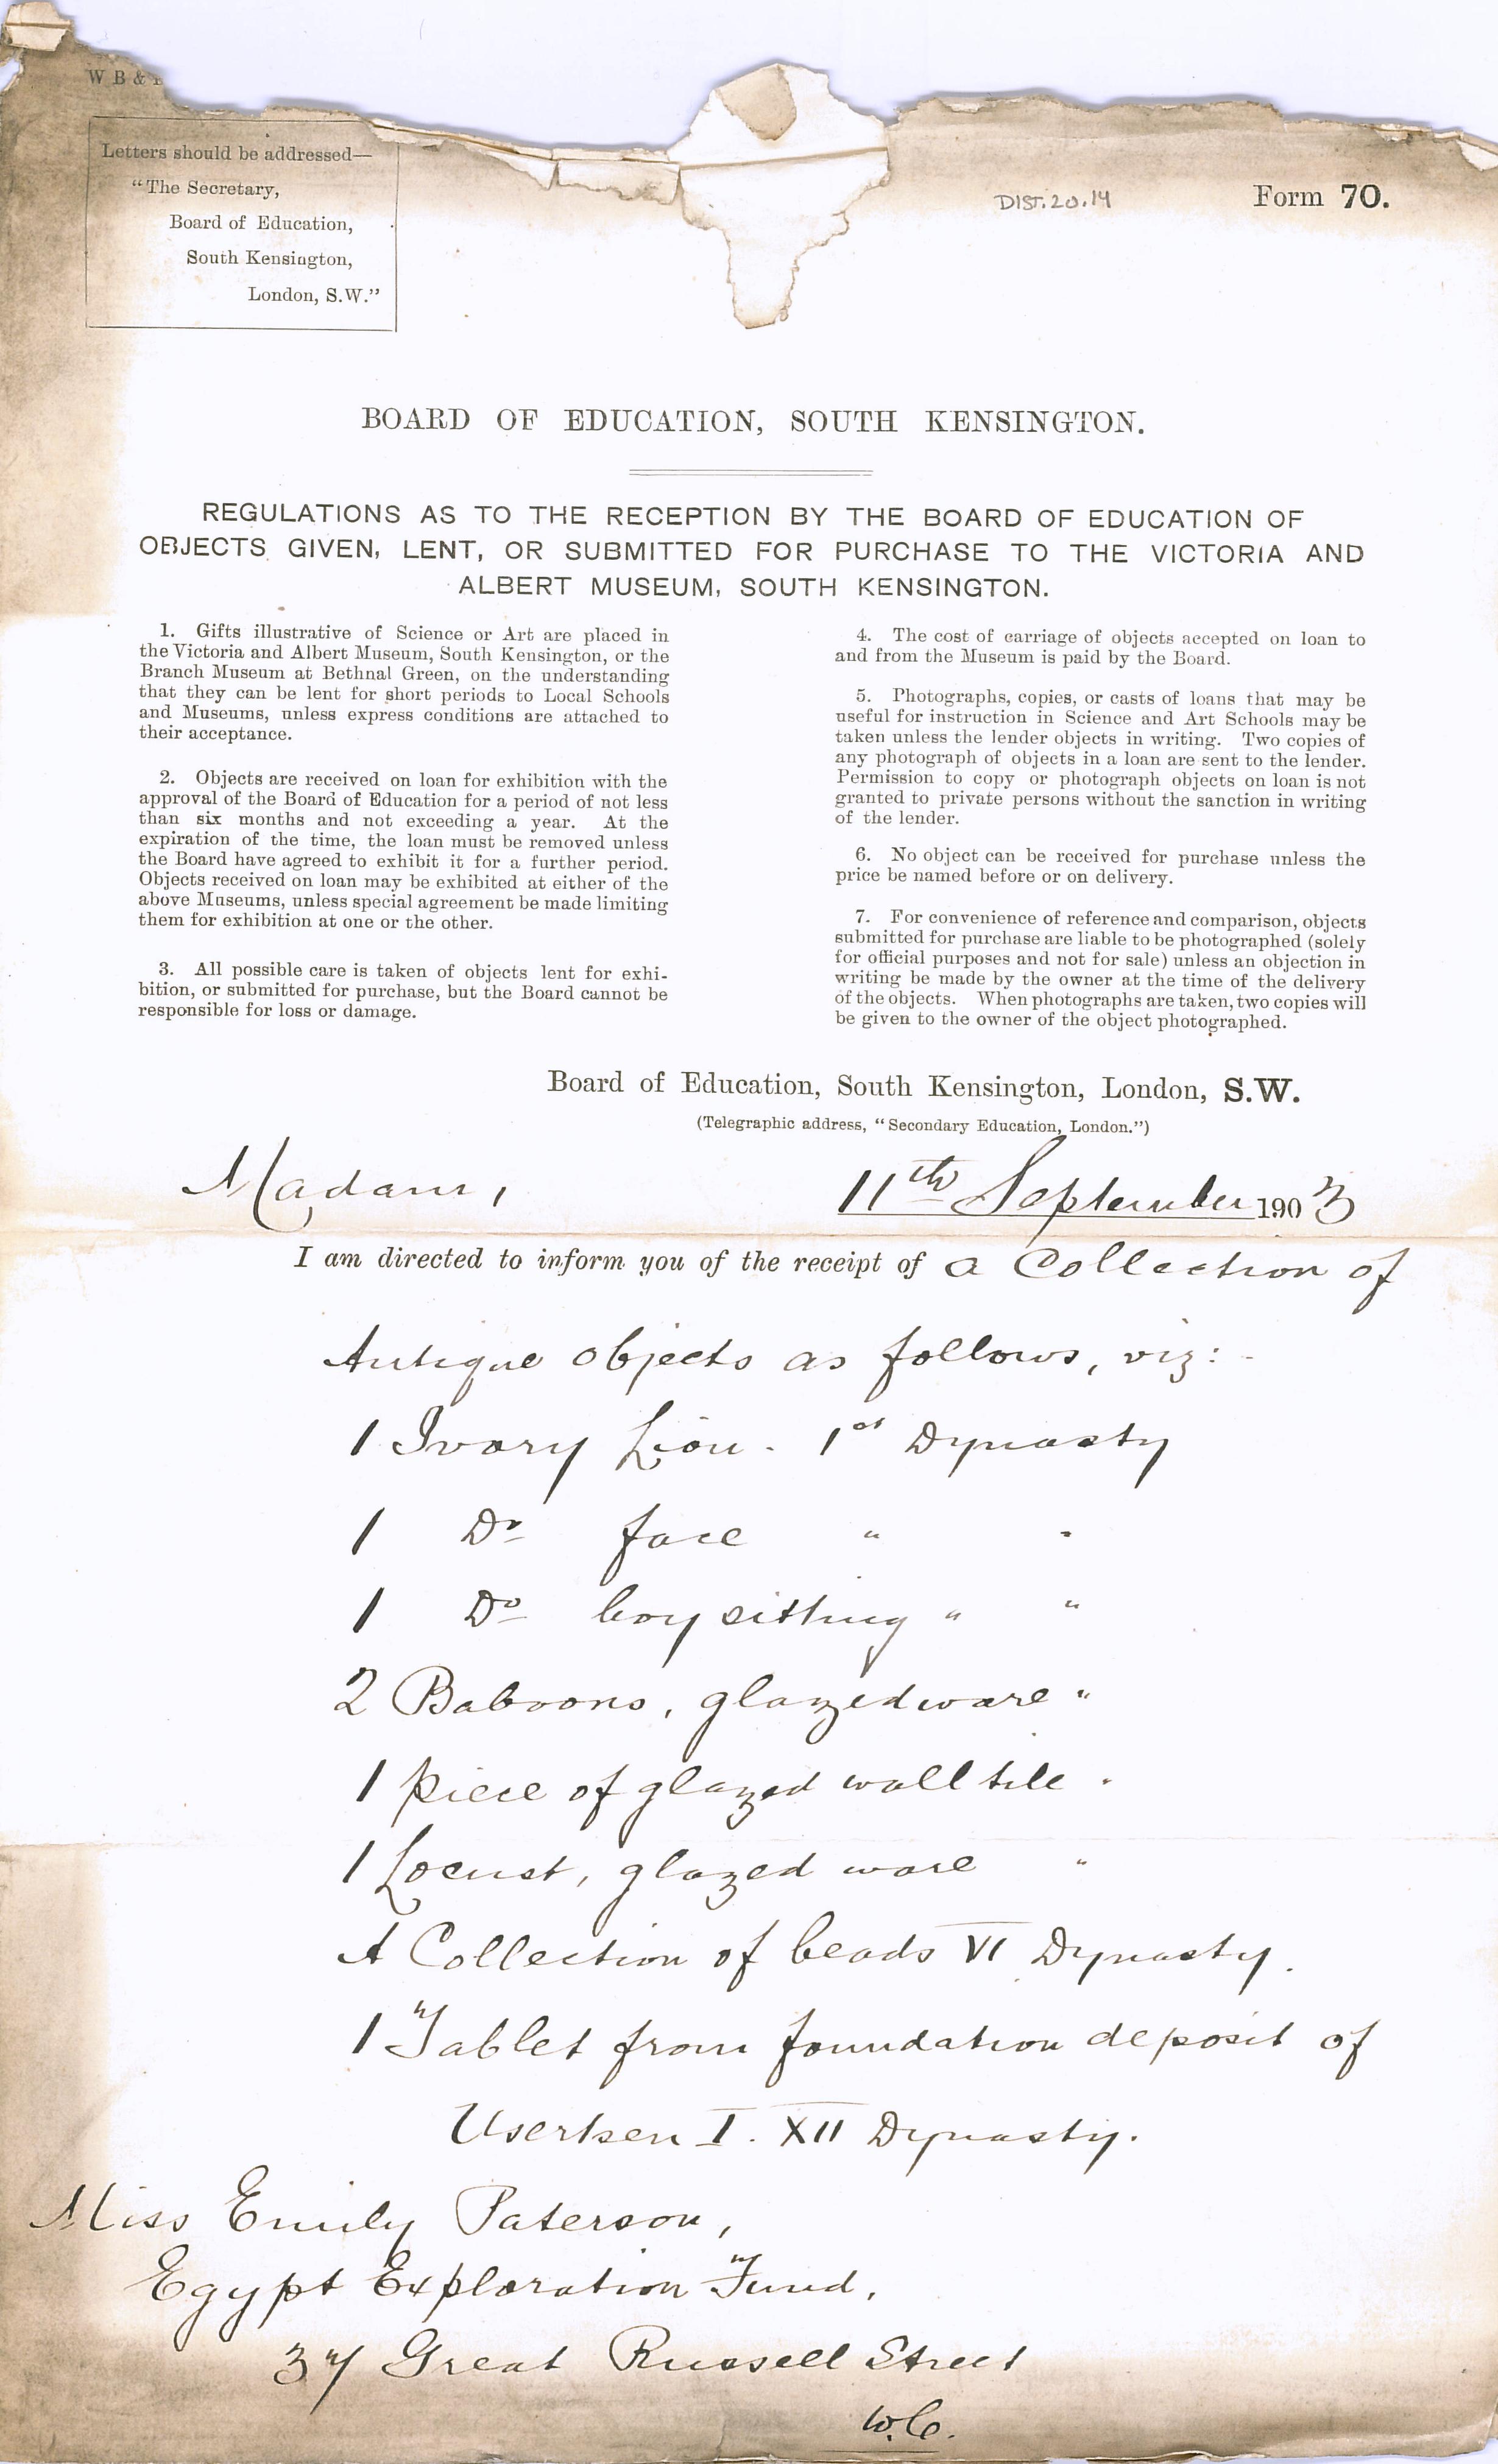 W B &
Letters should be addressed—
"The Secretary,
Board of Education,
South Kensington,
London, S.W."
DIST.20.14
Form 70.
BOARD OF EDUCATION, SOUTH KENSINGTON.
REGULATIONS AS TO THE RECEPTION BY THE BOARD OF EDUCATION OF
OBJECTS GIVEN, LENT, OR SUBMITTED FOR PURCHASE TO THE VICTORIA AND
ALBERT MUSEUM, SOUTH KENSINGTON.
1. Gifts illustrative of Science or Art are placed in
the Victoria and Albert Museum, South Kensington, or the
Branch Museum at Bethnal Green, on the understanding
that they can be lent for short periods to Local Schools
and Museums, unless express conditions are attached to
their acceptance.
2. Objects are received on loan for exhibition with the
approval of the Board of Education for a period of not less
than six months and not exceeding a year. At the
expiration of the time, the loan must be removed unless
the Board have agreed to exhibit it for a further period.
Objects received on loan may be exhibited at either of the
above Museums, unless special agreement be made limiting
them for exhibition at one or the other.
3. All possible care is taken of objects lent for exhi-
bition, or submitted for purchase, but the Board cannot be
responsible for loss or damage.
4. The cost of carriage of objects accepted on loan to
and from the Museum is paid by the Board.
5. Photographs, copies, or casts of loans that may be
useful for instruction in Science and Art Schools may be
taken unless the lender objects in writing. Two copies of
any photograph of objects in a loan are sent to the lender.
Permission to copy or photograph objects on loan is not
granted to private persons without the sanction in writing
of the lender.
6. No object can be received for purchase unless the
price be named before or on delivery.
7. For convenience of reference and comparison, objects
submitted for purchase are liable to be photographed (solely
for official purposes and not for sale) unless an objection in
writing be made by the owner at the time of the delivery
of the objects. When photographs are taken, two copies will
be given to the owner of the object photographed.
Board of Education, South Kensington, London, S.W.
(Telegraphic address, "Secondary Education, London.")
Madam, 11th September 1903
I am directed to inform you of the receipt of a Collection of
Antique objects as follows, viz:-
1 Ivory Lion. 1st Dynasty
1 Do face " "
1 Do boy sitting " "
2 Baboons, glazed ware "
1 piece of glazed wall tile "
1 Locust, glazed ware "
A Collection of beads VI Dynasty.
1 Tablet from foundation deposit of
Usertsen I. XII Dynasty.
Miss Emily Paterson,
Egypt Exploration Fund,
37 Great Russell Street
W.C.